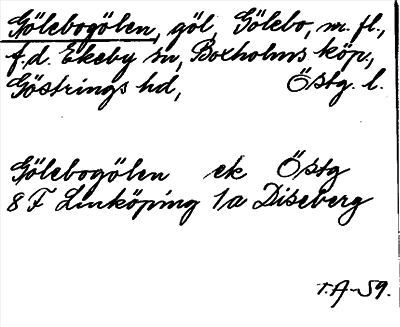 Gölebogölen, göl, Gölebo, m. fl.,
f.d. Ekeby sn, Boxholms köp.,
Göstrings hd, Östg. l.
Gölebogölen ek Östg
8 F Linköping 1/a Diseberg
T.A-59.